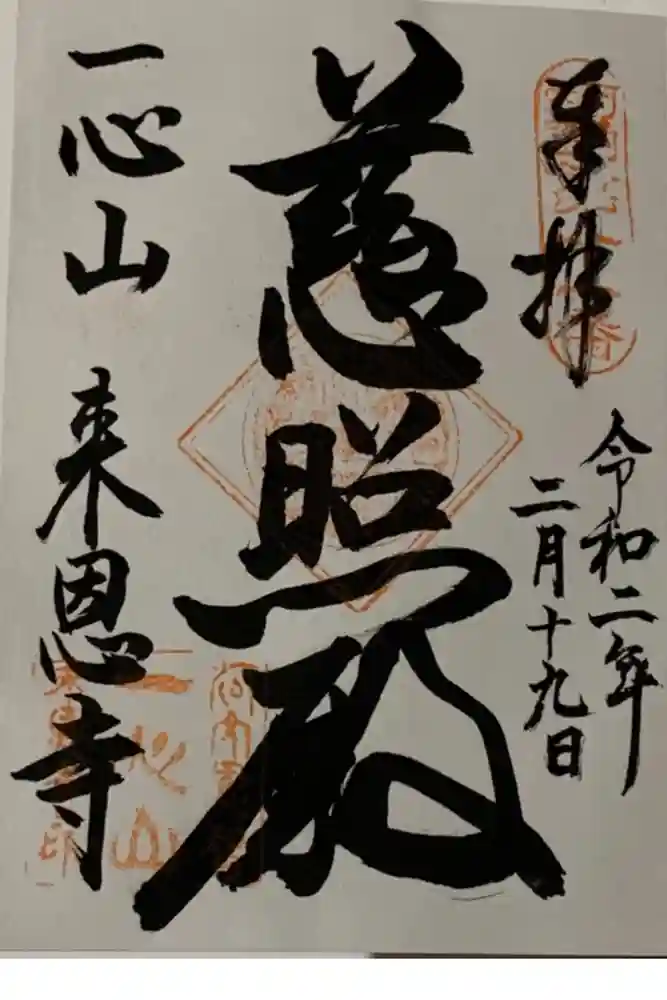 奉拝
令和二年
二月十九日
慈照殿
一心山
来恩寺
一心山